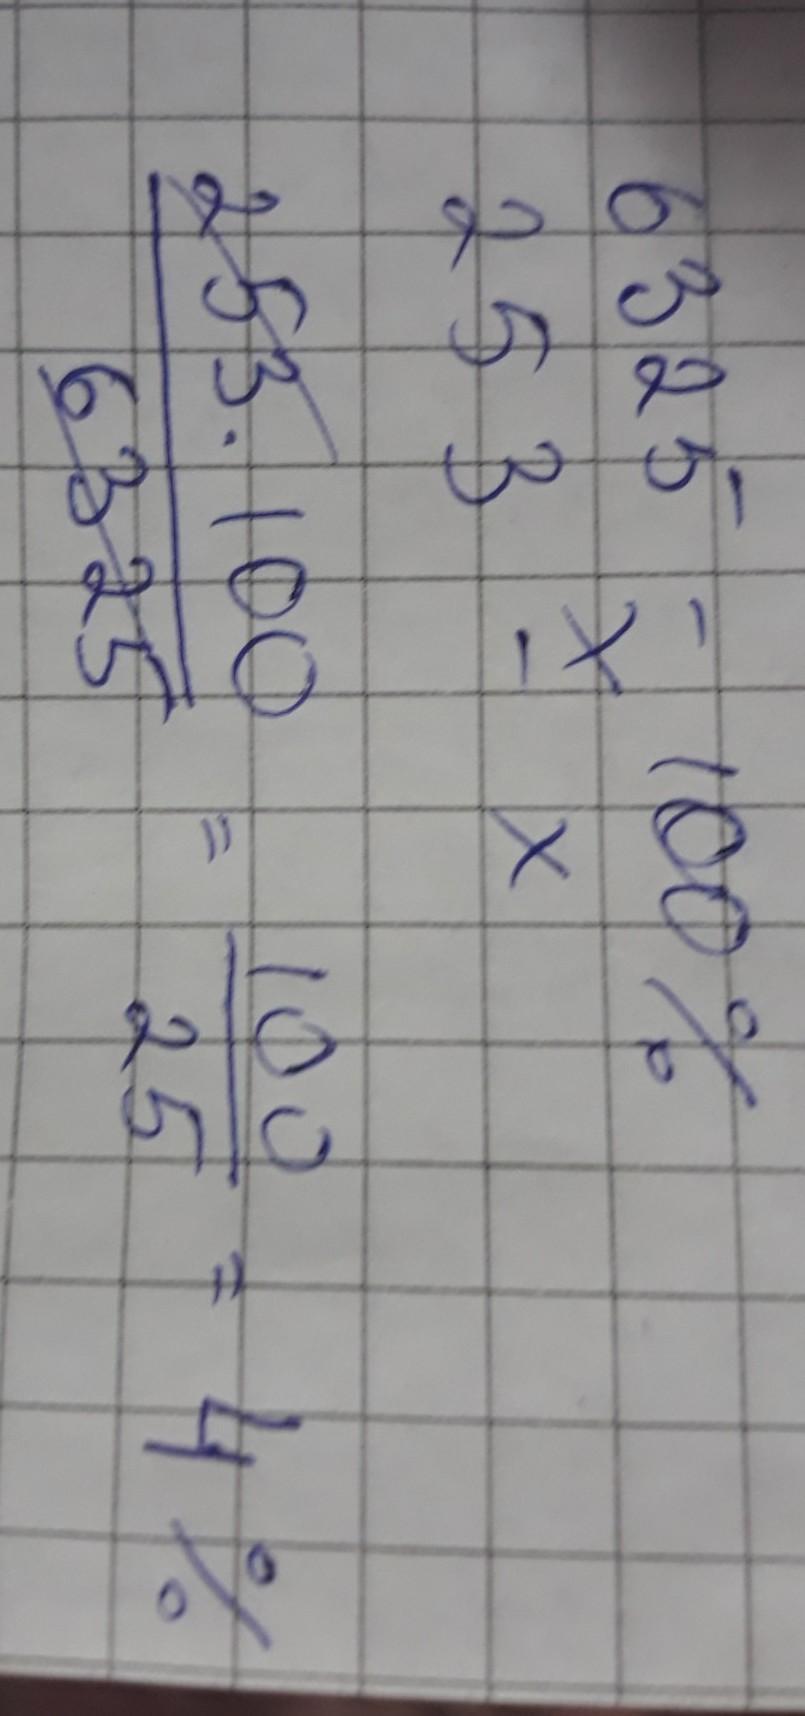 6325 - 100%
x
253 - x
253·100 / 6325 = 100 / 25 = 4%